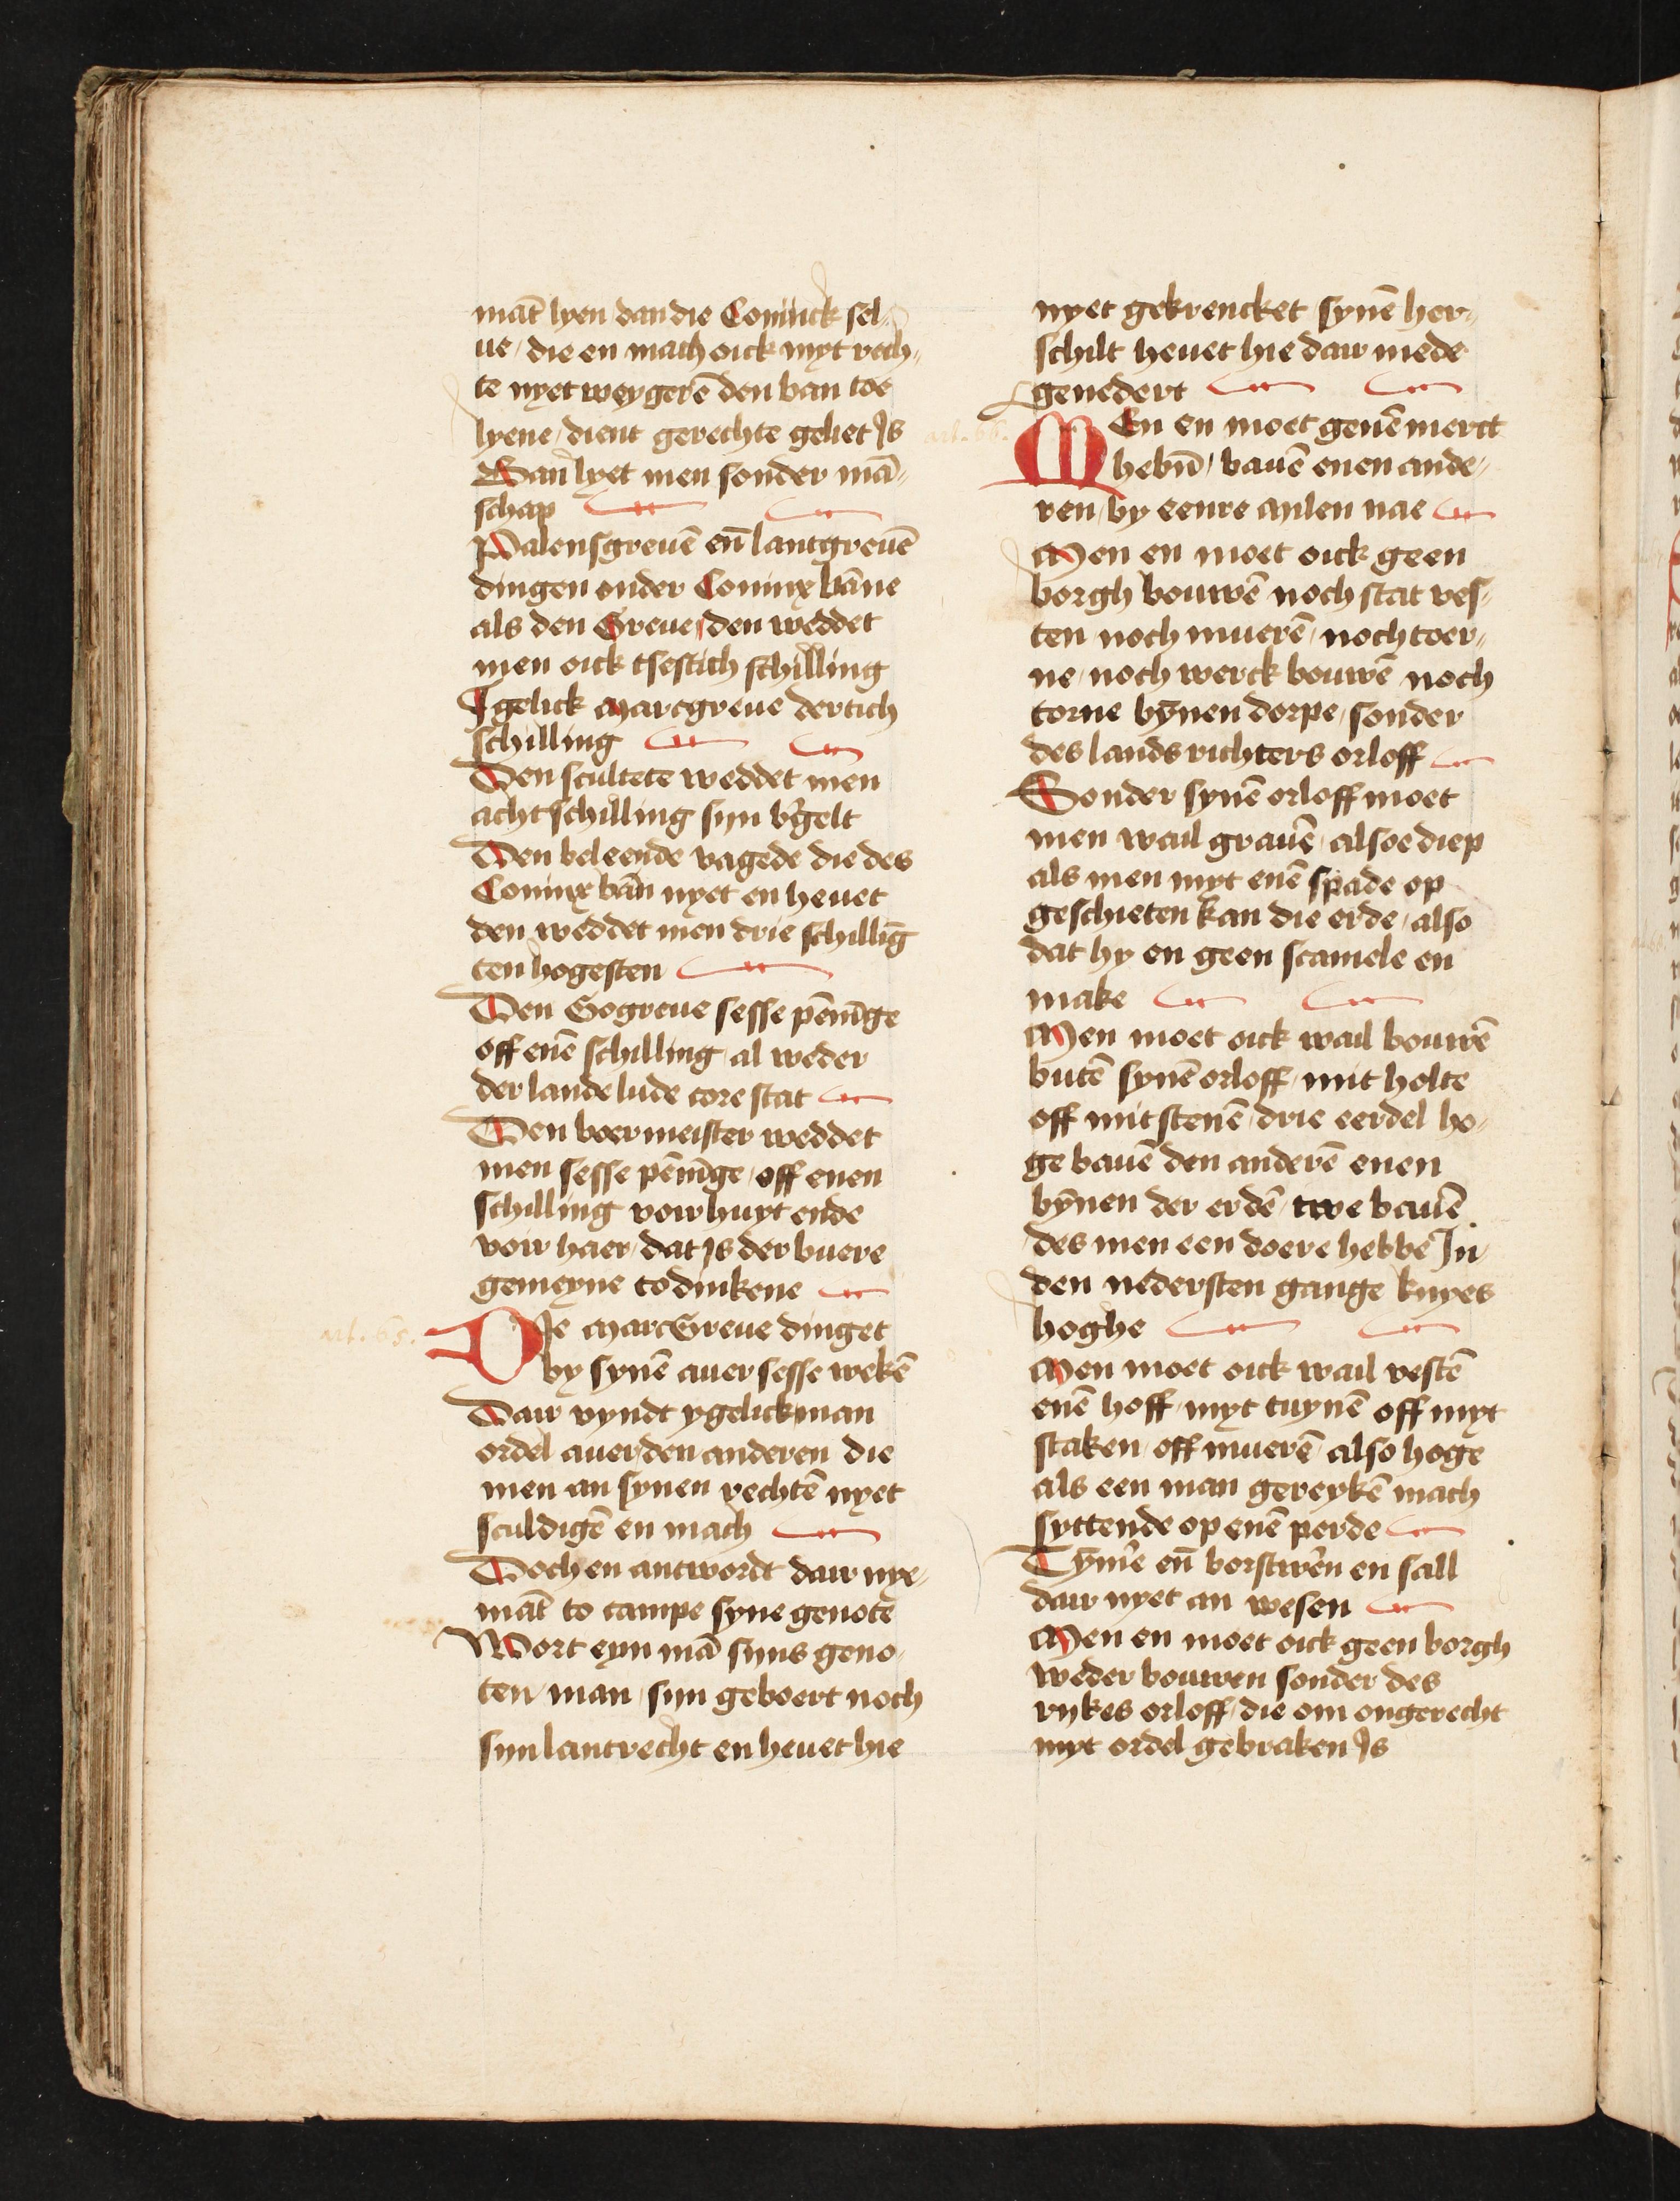 māt lyen dan die Coninck sel-
ue / die en mach oick myt rech-
te nyet weygerē den ban toe
lyene / dient gerechte geliet Js
Ban lyet men sonder mā-
schap
Palensgreuē eñ lantgreuē
dingen onder Coninx bāne
als den Greue / den weddet
men oick tsestich schilling
Jgelick Marcgreue dertich
schilling
Den scultete weddet men
acht schilling syn v'gelt
Den beleende vagede die des
Coninx bān nyet en heuet
den weddet men drie schillīg
ten hogesten
Den Gogreue sesse pēnīge
off enē schilling al weder
der lande lude core stat
Den boermeister weddet
men sesse pēnīge / off enen
schilling voir huyt ende
voir haer / dat Js der buere
gemeyne to drinkene
art. 65.
DJe MarcGreue dinget
by synē auer sesse wekē
Dair vyndt ygelick man
ordel auer den anderen die
men an synen rechtē nyet
sculdigē en mach
Doch en antwordt dair nye-
māt to campe syne genotē
Wort eyn mā syns geno-
ten / man / syn geboert noch
syn lantrecht en heuet hie
nyet gekrencket synē her-
schilt heuet hie dair mede
genedert
art. 66.
MEn en moet genē merct
hebñ / bauē enen ande-
ren / by eenre mylen nae
Men en moet oick geen
borgh bouwē noch stat ves-
ten / noch muerē / noch toer-
ne / noch werck bouwē noch
torne bȳnen dorpe / sonder
des lands richters orloff
Sonder synē orloff moet
men wail grauē / alsoe diep
als men myt enē spade op
geschieten kan die erde / also
dat hy en geen scamele en
make
Men moet oick wail bouwē
butē synē orloff / mit holte
off mit stenē / drie eerdel ho-
ge bauē den anderē enen
bȳnen der erdē / twe bauē
des men een doere hebbe Jn
den nedersten gange knyes
hoghe
Men moet oick wail vestē
enē hoff / myt tuynē off myt
staken / off muerē / also hoge
als een man gereykē mach
syttende op enē perde
Tym'e eñ borstwe'n en sall
dair nyet an wesen
Men en moet oick geen borgh
weder bouwen sonder des
rykes orloff / die om ongerecht
myt ordel gebraken Js